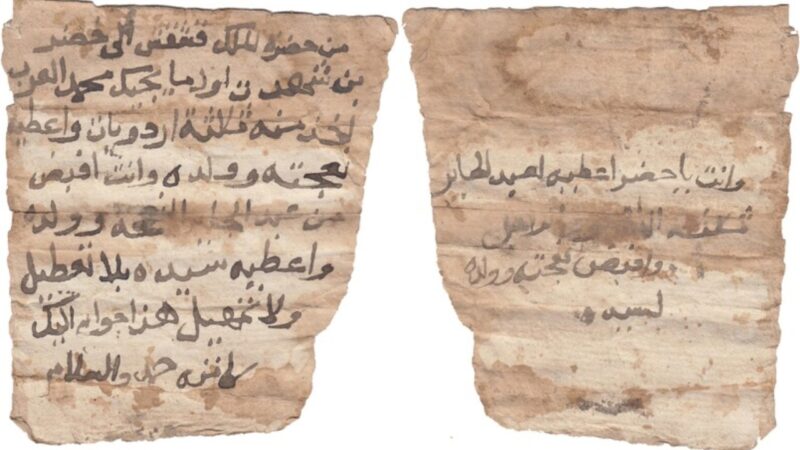 من حضرة الملك قشقش الى خضر
بن شهدت اول ما يجيك محمد العرب
تاخذ منه ثلاثة اردويات واعطيه
نعجته وولده وانت اقبض
من عبد الجابر النعجة وولده
واعطيه سيده بلا تعطيل
ولا تمهيل هذا جوابه اليك
كاتبه حمد والسلام
وانت يا خضر اعطيه لعبد الجابر
ثلاثة
واقبض نعجته وولده
لسيده